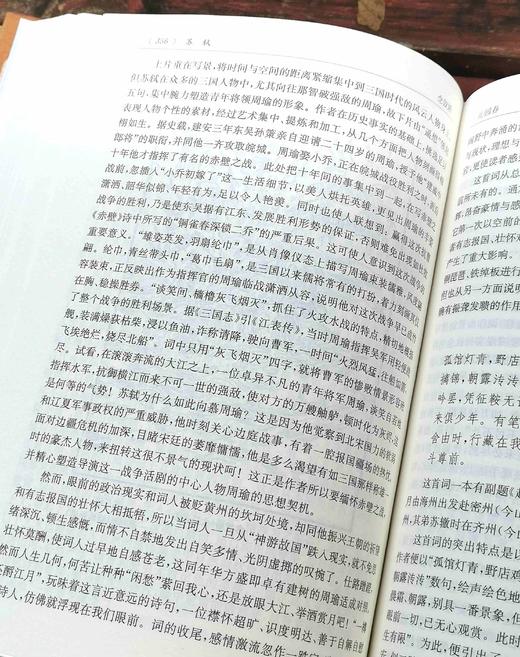 （356） 苏 轼
上片重在写景，将时间与空间的距离紧缩集中到三国时代的风云人物身上。
但苏轼在众多的三国人物中，尤其向往那智破强敌的周瑜，故下片由“遥想”
五句，集中腕力塑造青年将领周瑜的形象。作者在历史事实的基础上，挑选足以
表现人物个性的素材，经过艺术集中、提炼和加工，从几个方面把人物刻画得栩
栩如生。据史载，建安三年东吴孙策亲自迎请二十四岁的周瑜，授予他“建威中
郎将”的职衔，并同他一齐攻取皖城。周瑜娶小乔，正在皖城战役胜利之时，
十年他才指挥了有名的赤壁之战。此处把十年间的事集中到一起，在写赤壁之
战前，忽插入“小乔初嫁了”这一生活细节，以美人烘托英雄，更见出周瑜的丰姿
潇洒、韶华似锦、年轻有为，足以令人艳羡。同时也使人联想到：赢得这次抗曹
战争的胜利，乃是使东吴据有江东、发展胜利形势的保证，否则难免出现如杜牧
《赤壁》诗中所写的“铜雀春深锁二乔”的严重后果。这可使人意识到这次战争的
重要意义。“雄姿英发，羽扇纶巾”，是从肖像仪态上描写周瑜束装儒雅，风度翩
翩。纶巾，青丝带头巾，“葛巾毛扇”，是三国以来儒将常有的打扮，着力刻画其仪
容装束，正反映出作为指挥官的周瑜临战潇洒从容，说明他对这次战争早已成竹
在胸、稳操胜券。“谈笑间、樯橹灰飞烟灭”，抓住了火攻水战的特点，精切地概括
了整个战争的胜利场景。据《三国志》引《江表传》，当时周瑜指挥吴军用轻便战
舰，装满燥荻枯柴，浸以鱼油，诈称请降，驶向曹军，一时间“火烈风猛，往船如箭，
飞埃绝烂，烧尽北船”。词中只用“灰飞烟灭”四字，就将曹军的惨败情景形容殆
尽。试看，在滚滚奔流的大江之上，一位卓异不凡的青年将军周瑜，谈笑自若地
指挥水军，抗御横江而来不可一世的强敌，使对方的万艘舳舻，顿时化为灰烬，这
是何等的气势！苏轼为什么如此向慕周瑜？这是因为他觉察到北宋国力的软弱
和辽夏军事政权的严重威胁，他时刻关心边庭战事，有着一腔报国疆场的热忱。
面对边疆危机的加深，目睹宋廷的萎靡慵懦，他是多么渴望有如三国那样称雄一
时的豪杰人物，来扭转这很不景气的现状呵！这正是作者所以要缅怀赤壁之战，
并精心塑造导演这一战争活剧的中心人物周瑜的思想契机。
然而，眼前的政治现实和词人被贬黄州的坎坷处境，却同他振兴王朝的祈望
和有志报国的壮怀大相抵牾，所以当词人一旦从“神游故国”跌入现实，就不免思
绪深沉、顿生感慨，而情不自禁地发出自笑多情、光阴虚掷的叹惋了。仕路蹭蹬，
壮怀莫酬，使词人过早地自感苍老，这同年华方盛即卓有建树的周瑜适成对照。
然而人生几何，何苦让种种“闲愁”萦回我心，还是放眼大江、举酒赏月吧！“一樽
还酹江月”，玩味着这言近意远的诗句，一位襟怀超旷、识度明达、善于自解自慰
诗人，仿佛就浮现在我们眼前。词的收尾，感情激流忽作一
视野中奔涌的
与现状，理想与
宕，更使读者感
这首词从总
前所未有的。通
昂奋豪情与感
它第一次以空前
备有志报国、壮怀
产生了重大影响。
柳琵琶、铁绰板进行
但也从另一方面说明
确有振聋发聩的作用
孤馆灯青，野店
摛锦，朝露漙漙
吟罢，凭征鞍无
来俱少年。有笔
舍由时，行藏在我
斗尊前。
这首词一本有副题《
月由海州出发赴密州（今山
仕，其弟苏辙时在齐州（今山
这首词的突出特点是以
作者便以“孤馆灯青，野店鸡
朝露漙漙”数句，绘声绘色地